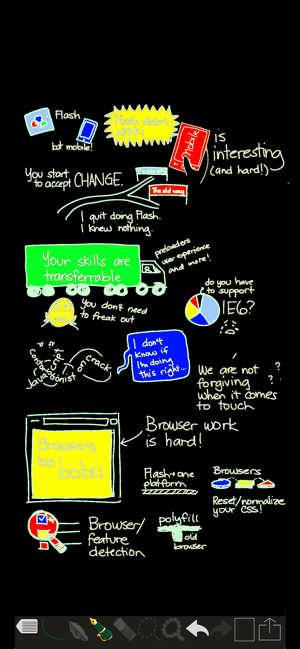 Flash
but mobile!
Flash didn't
work!
mobile
is
interesting
(and hard!)
You start
to accept CHANGE.
The old way
I quit doing Flash.
I knew nothing.
Your skills are
transferrable
preloaders
user experience
and more!
You don't need
to freak out
do you have
to support
IE6?
I don't
know if
I'm doing
this right...
on crack
We are not
forgiving
when it comes
to touch
??
?
Browser work
is hard!
Browsers
be
Flash → one
platform
Browsers
Reset/normalize
your CSS!
Browser/
feature
detection
polyfill
old
browser